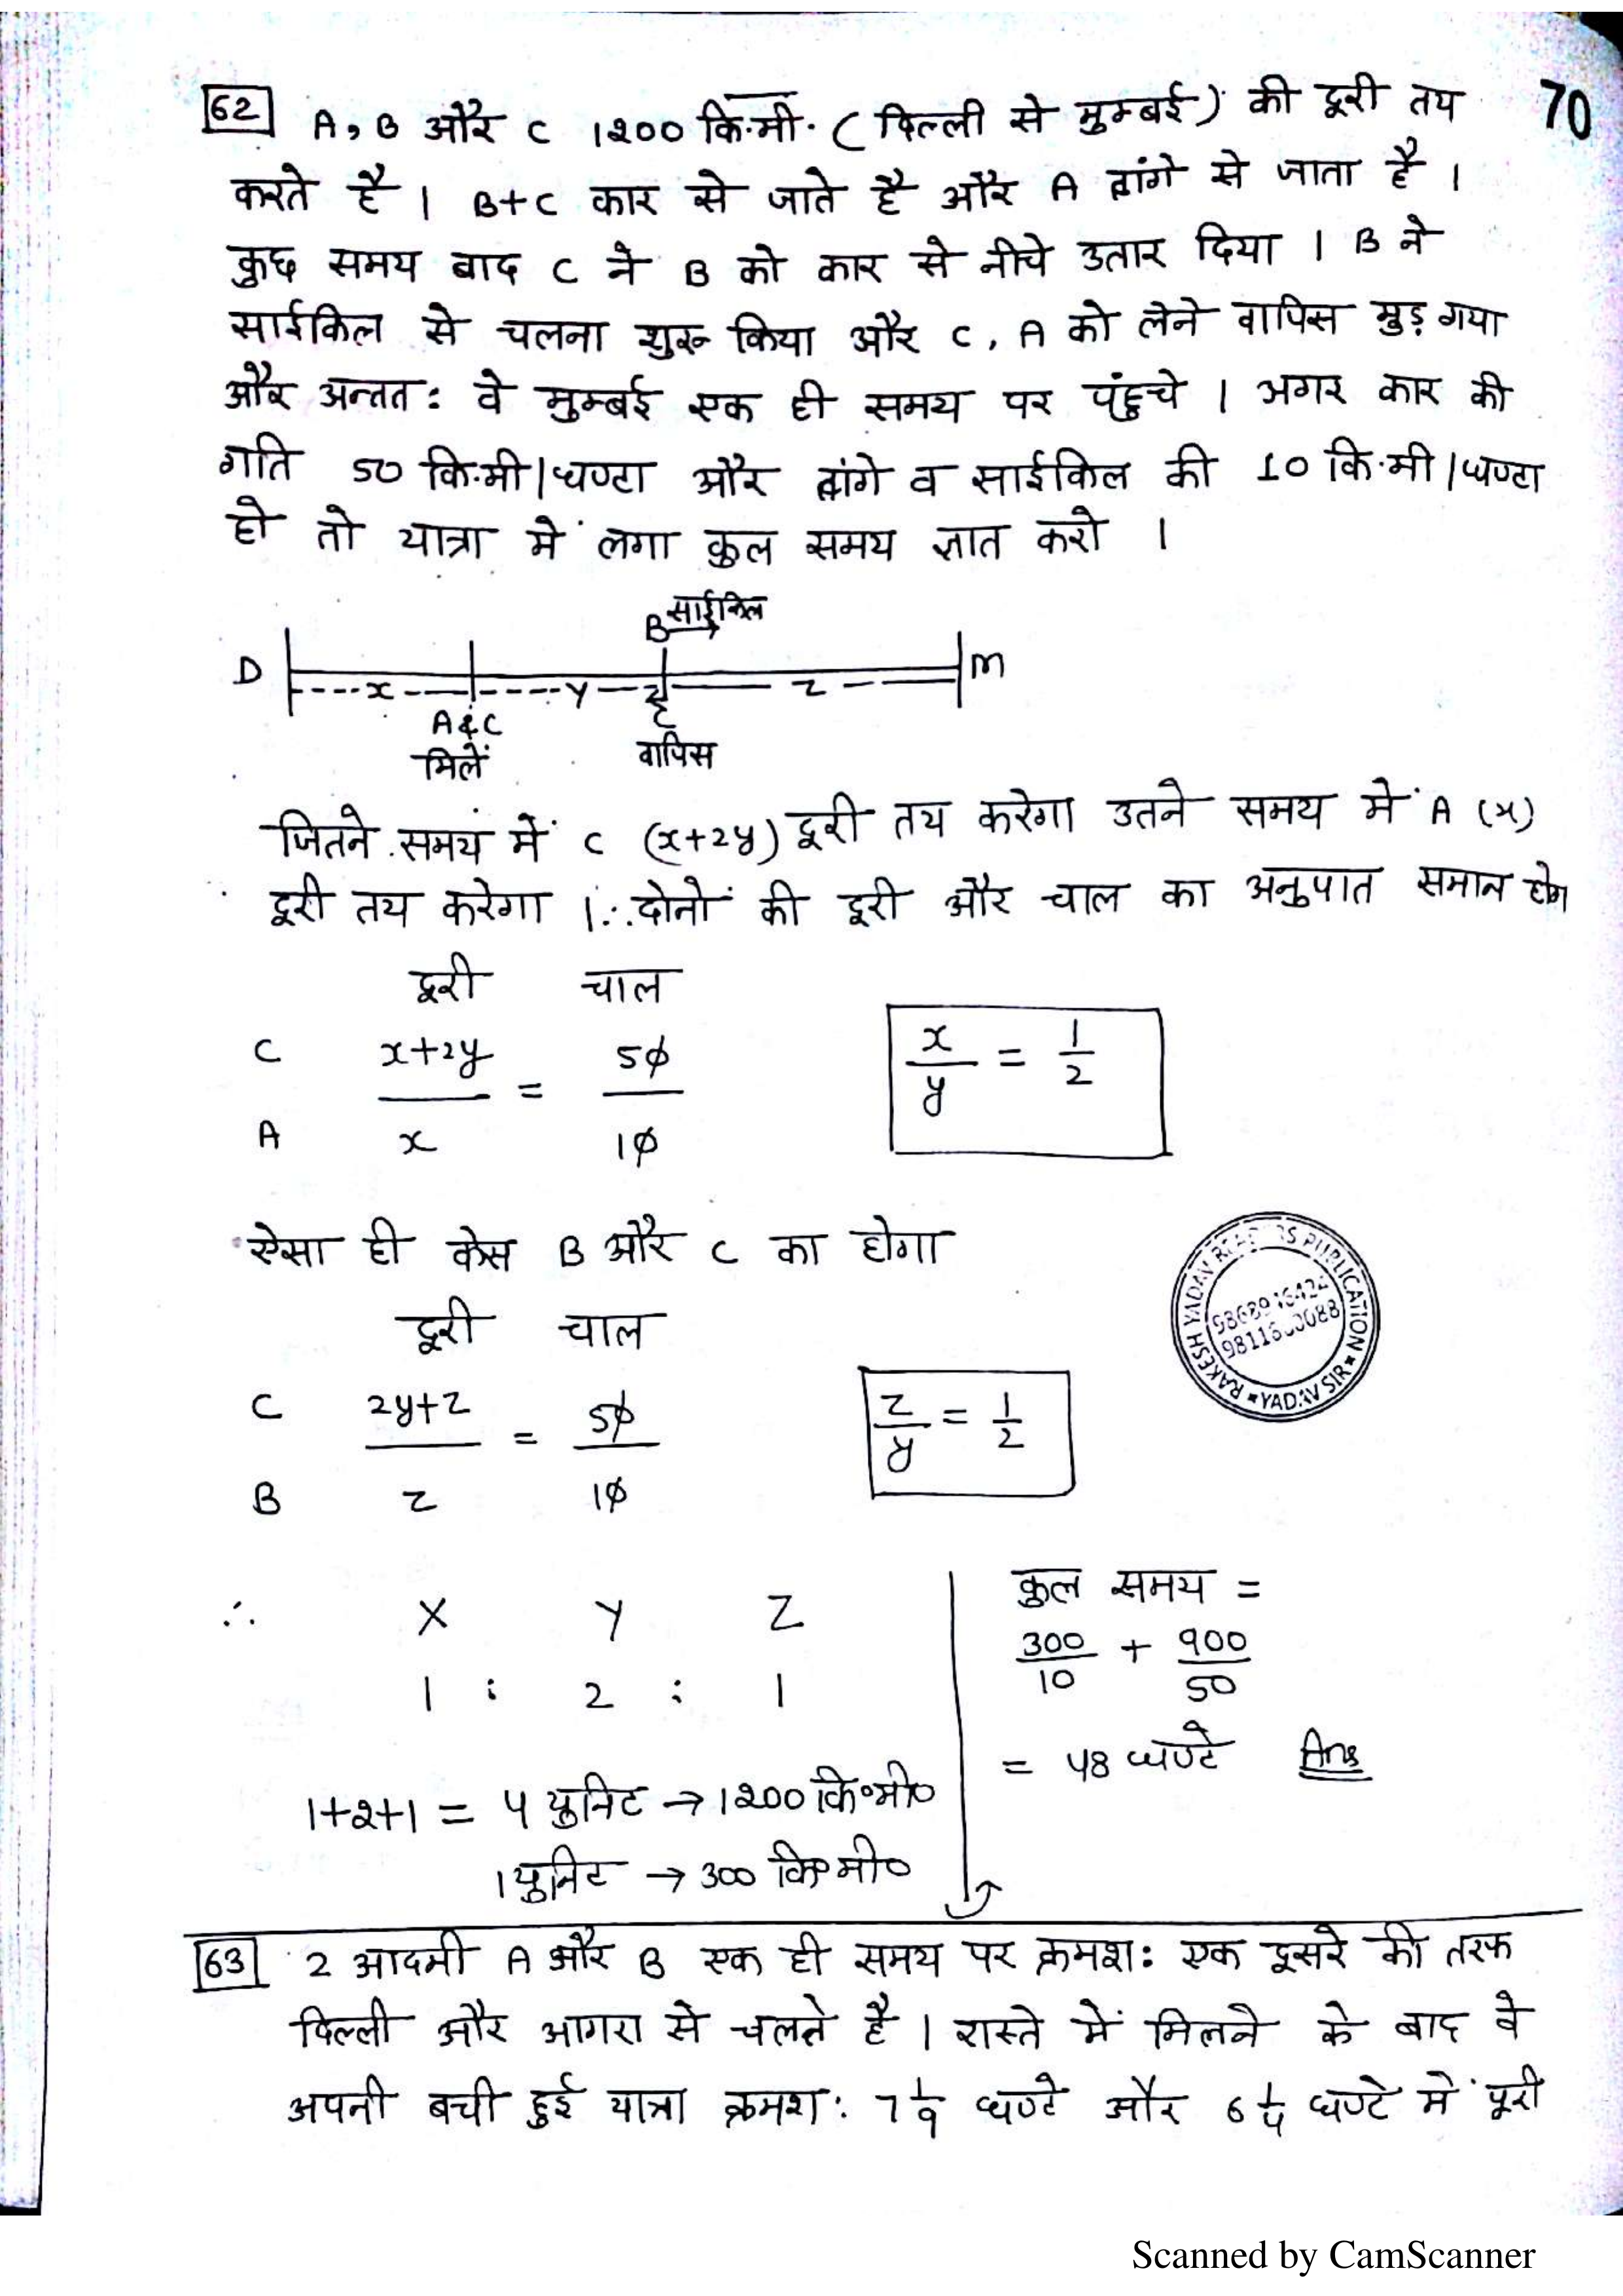 62 A, B और C 1200 कि.मी. ( दिल्ली से मुम्बई ) की दूरी तय 70
करते है । B+C कार से जाते है और A तांगे से जाता है ।
कुछ समय बाद C ने B को कार से नीचे उतार दिया । B ने
साईकिल से चलना शुरू किया और C, A को लेने वापिस मुड़ गया
और अन्तत: वे मुम्बई एक ही समय पर पंहुचे । अगर कार की
गति 50 कि.मी/घण्टा और तांगे व साईकिल की 10 कि.मी/घण्टा
हो तो यात्रा में लगा कुल समय ज्ञात करो ।
B साईकिल
D M
x y z
A & C
मिलें वापिस
जितने समय में C (x+2y) दूरी तय करेगा उतने समय में A (x)
दूरी तय करेगा । ∴ दोनों की दूरी और चाल का अनुपात समान होगा
दूरी चाल
C x+2y / A x = 50 / 10
x/y = 1/2
ऐसा ही केस B और C का होगा
दूरी चाल
C 2y+z / B z = 50 / 10
z/y = 1/2
RAKESH YADAV READERS PUBLICATION
YADAV SIR
∴ X Y Z
1 : 2 : 1
1+2+1 = 4 युनिट → 1200 कि॰मी॰
1 युनिट → 300 कि॰मी॰
कुल समय =
300/10 + 900/50
= 48 घण्टे Ans
63 2 आदमी A और B एक ही समय पर क्रमश: एक दूसरे की तरफ
दिल्ली और आगरा से चलते है । रास्ते में मिलने के बाद वे
अपनी बची हुई यात्रा क्रमश: 7 1/9 घण्टे और 6 1/4 घण्टे में पूरी
Scanned by CamScanner